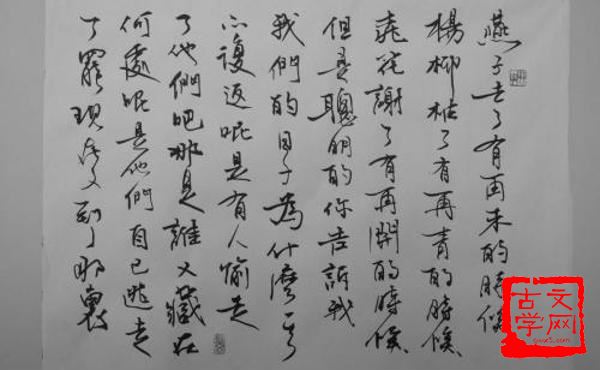 燕子去了有再来的時候
楊柳枯了有再青的時候
桃花謝了有再開的時候
但是聰明的你告訴我
我們的日子為什麼一去
不復返呢是有人偷走
了他們吧那是誰又藏在
何處呢是他們自己逃走
了罷現在又到了那裏
古文
学网